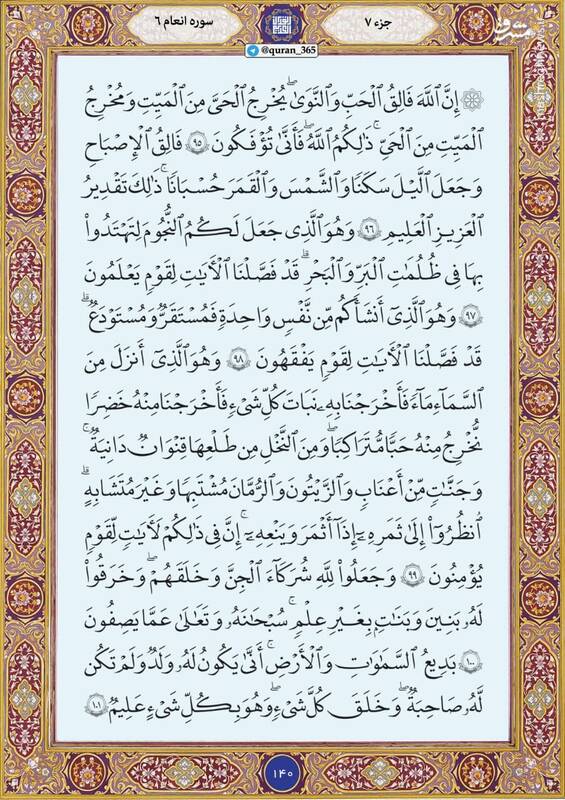 سوره انعام ۶
جزء ۷
@quran_365
مشرق
إِنَّ ٱللَّهَ فَالِقُ ٱلْحَبِّ وَٱلنَّوَىٰ ۖ يُخْرِجُ ٱلْحَىَّ مِنَ ٱلْمَيِّتِ وَمُخْرِجُ
ٱلْمَيِّتِ مِنَ ٱلْحَىِّ ۚ ذَٰلِكُمُ ٱللَّهُ ۖ فَأَنَّىٰ تُؤْفَكُونَ ۹۵ فَالِقُ ٱلْإِصْبَاحِ
وَجَعَلَ ٱلَّيْلَ سَكَنًا وَٱلشَّمْسَ وَٱلْقَمَرَ حُسْبَانًا ۚ ذَٰلِكَ تَقْدِيرُ
ٱلْعَزِيزِ ٱلْعَلِيمِ ۹۶ وَهُوَ ٱلَّذِى جَعَلَ لَكُمُ ٱلنُّجُومَ لِتَهْتَدُوا۟
بِهَا فِى ظُلُمَٰتِ ٱلْبَرِّ وَٱلْبَحْرِ ۗ قَدْ فَصَّلْنَا ٱلْأَيَٰتِ لِقَوْمٍ يَعْلَمُونَ
۹۷ وَهُوَ ٱلَّذِىٓ أَنشَأَكُم مِّن نَّفْسٍ وَٰحِدَةٍ فَمُسْتَقَرٌّ وَمُسْتَوْدَعٌ ۗ
قَدْ فَصَّلْنَا ٱلْأَيَٰتِ لِقَوْمٍ يَفْقَهُونَ ۹۸ وَهُوَ ٱلَّذِىٓ أَنزَلَ مِنَ
ٱلسَّمَآءِ مَآءً فَأَخْرَجْنَا بِهِۦ نَبَاتَ كُلِّ شَىْءٍ فَأَخْرَجْنَا مِنْهُ خَضِرًا
نُّخْرِجُ مِنْهُ حَبًّا مُّتَرَاكِبًا وَمِنَ ٱلنَّخْلِ مِن طَلْعِهَا قِنْوَانٌ دَانِيَةٌ
وَجَنَّٰتٍ مِّنْ أَعْنَابٍ وَٱلزَّيْتُونَ وَٱلرُّمَّانَ مُشْتَبِهًا وَغَيْرَ مُتَشَٰبِهٍ ۗ
ٱنظُرُوٓا۟ إِلَىٰ ثَمَرِهِۦٓ إِذَآ أَثْمَرَ وَيَنْعِهِۦٓ ۚ إِنَّ فِى ذَٰلِكُمْ لَأَيَٰتٍ لِّقَوْمٍ
يُؤْمِنُونَ ۹۹ وَجَعَلُوا۟ لِلَّهِ شُرَكَآءَ ٱلْجِنَّ وَخَلَقَهُمْ ۖ وَخَرَقُوا۟
لَهُۥ بَنِينَ وَبَنَٰتٍ بِغَيْرِ عِلْمٍ ۚ سُبْحَٰنَهُۥ وَتَعَٰلَىٰ عَمَّا يَصِفُونَ
۱۰۰ بَدِيعُ ٱلسَّمَٰوَٰتِ وَٱلْأَرْضِ ۖ أَنَّىٰ يَكُونُ لَهُۥ وَلَدٌ وَلَمْ تَكُن
لَّهُۥ صَٰحِبَةٌ ۖ وَخَلَقَ كُلَّ شَىْءٍ ۖ وَهُوَ بِكُلِّ شَىْءٍ عَلِيمٌ ۱۰۱
۱۴۰